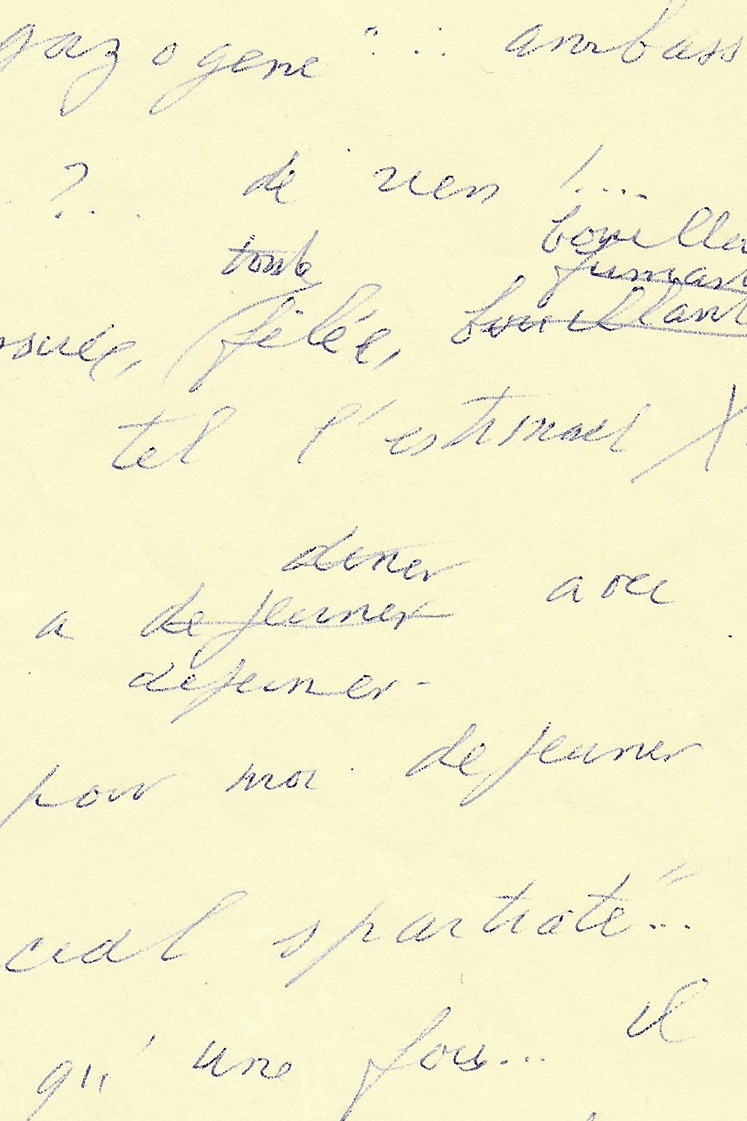 gazogene" : ambass
? de rien !....
bouilla
toute fuman
fêlée, bouillant
tel l'estimael X
diner
a dejeuner avec
dejeuner -
pour moi dejeuner
cial spartiate"...
Il
qu' une fois...